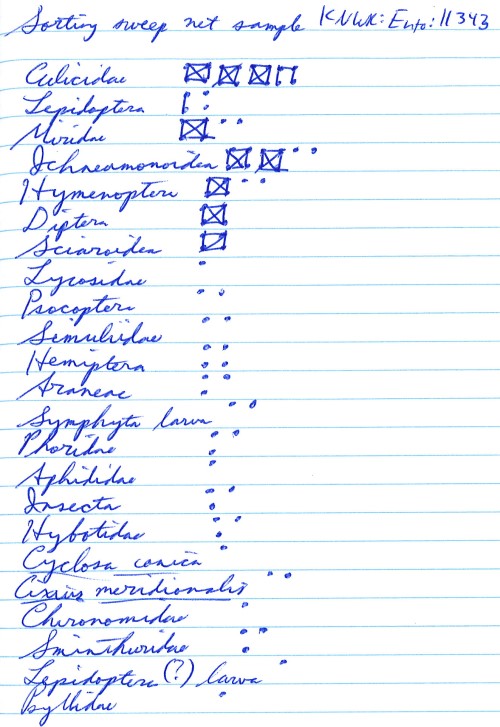 Sorting sweep net sample KNWR:Ento:11343
Culicidae
Lepidoptera
Miridae
Ichneumonoidea
Hymenoptera
Diptera
Sciaroidea
Lycosidae
Psocoptera
Simuliidae
Hemiptera
Araneae
Symphyta larva
Phoridae
Aphididae
Insecta
Hybotidae
Cyclosa conica
Cixius meridionalis
Chironomidae
Sminthuridae
Lepidoptera (?) larva
Psyllidae